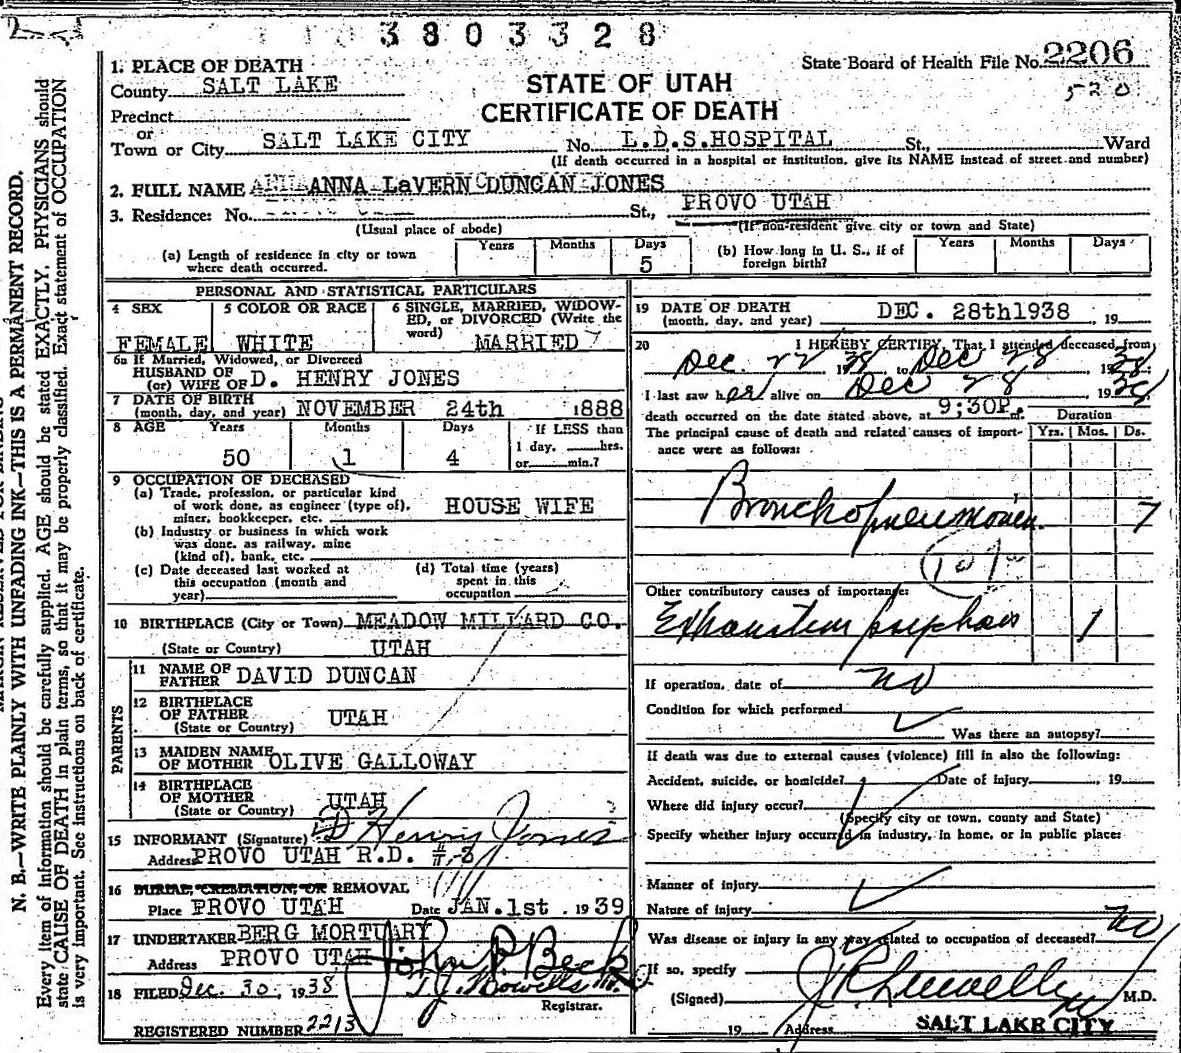 3803328
State Board of Health File No. 2206
520
1. PLACE OF DEATH
County SALT LAKE
STATE OF UTAH
CERTIFICATE OF DEATH
Precinct
or
Town or City SALT LAKE CITY No. L.D.S.HOSPITAL St., Ward
(If death occurred in a hospital or institution, give its NAME instead of street and number)
2. FULL NAME ANNA LaVERN DUNCAN JONES
3. Residence: No. St., PROVO UTAH
(Usual place of abode) (If non-resident give city or town and State)
(a) Length of residence in city or town where death occurred. Years Months Days 5
(b) How long in U. S., if of foreign birth? Years Months Days
PERSONAL AND STATISTICAL PARTICULARS
4 SEX FEMALE
5 COLOR OR RACE WHITE
6 SINGLE, MARRIED, WIDOW-
ED, or DIVORCED (Write the
word) MARRIED
6a If Married, Widowed, or Divorced
HUSBAND OF
(or) WIFE OF D. HENRY JONES
7 DATE OF BIRTH
(month, day, and year) NOVEMBER 24th 1888
8 AGE Years 50 Months 1 Days 4 If LESS than
1 day, hrs.
or min.?
9 OCCUPATION OF DECEASED
(a) Trade, profession, or particular kind
of work done, as engineer (type of),
miner, bookkeeper, etc. HOUSE WIFE
(b) Industry or business in which work
was done, as railway, mine
(kind of), bank, etc.
(c) Date deceased last worked at
this occupation (month and
year)
(d) Total time (years)
spent in this
occupation
10 BIRTHPLACE (City or Town) MEADOW MILLARD CO.
(State or Country) UTAH
PARENTS
11 NAME OF
FATHER DAVID DUNCAN
12 BIRTHPLACE
OF FATHER
(State or Country) UTAH
13 MAIDEN NAME
OF MOTHER OLIVE GALLOWAY
14 BIRTHPLACE
OF MOTHER
(State or Country) UTAH
15 INFORMANT (Signature) D Henry Jones
Address PROVO UTAH R.D. #3
16 BURIAL, CREMATION, OR REMOVAL
Place PROVO UTAH Date JAN.1st, 1939
17 UNDERTAKER BERG MORTUARY
Address PROVO UTAH
John P. Beck
18 FILED Dec. 30, 1938
Registrar.
REGISTERED NUMBER 2213
19 DATE OF DEATH
(month, day, and year) DEC. 28th1938, 19
20 I HEREBY CERTIFY, That I attended deceased from
Dec. 22 1938, to Dec 28, 1938
I last saw her alive on Dec 28, 1938
death occurred on the date stated above, at 9;30P. m. Duration
The principal cause of death and related causes of import-
ance were as follows: Yrs. Mos. Ds.
Bronchopneumonia 7
107a
Other contributory causes of importance:
Exhaustion 1
If operation, date of no
Condition for which performed
Was there an autopsy?
If death was due to external causes (violence) fill in also the following:
Accident, suicide, or homicide? Date of Injury, 19
Where did injury occur?
(Specify city or town, county and State)
Specify whether injury occurred in industry, in home, or in public place:
Manner of injury
Nature of injury
Was disease or injury in any way related to occupation of deceased? no
If so, specify
(Signed) M.D.
19 Address SALT LAKE CITY
N. B.—WRITE PLAINLY WITH UNFADING INK—THIS IS A PERMANENT RECORD.
Every item of information should be carefully supplied. AGE should be stated EXACTLY. PHYSICIANS should
state CAUSE OF DEATH in plain terms, so that it may be properly classified. Exact statement of OCCUPATION
is very important. See instructions on back of certificate.